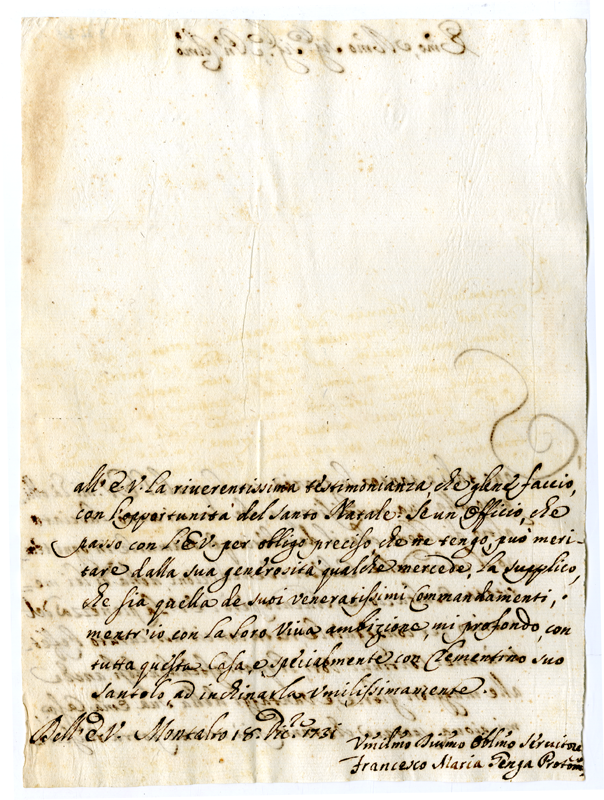 all' E V. La riverentissima testimonianza, che gliene faccio,
con l'opportunità del Santo Natale: Se un Officio, che
passo con L'E.V. per obligo preciso che ne tengo, può meri-
tare dalla sua generosità qualche mercede, La supplico,
che sia quella de suoi veneratissimi Commandamenti,
mentr'io con La Loro Viva ambizione, mi profondo, con
tutta questa Casa, e specialmente con Clementino suo
Santolo, ad inchinarla Vmilissimamente.
Dell' E V. Montalto 18. Dic.re 1731
Vmilmo Devmo Oblmo Servitore
Francesco Maria